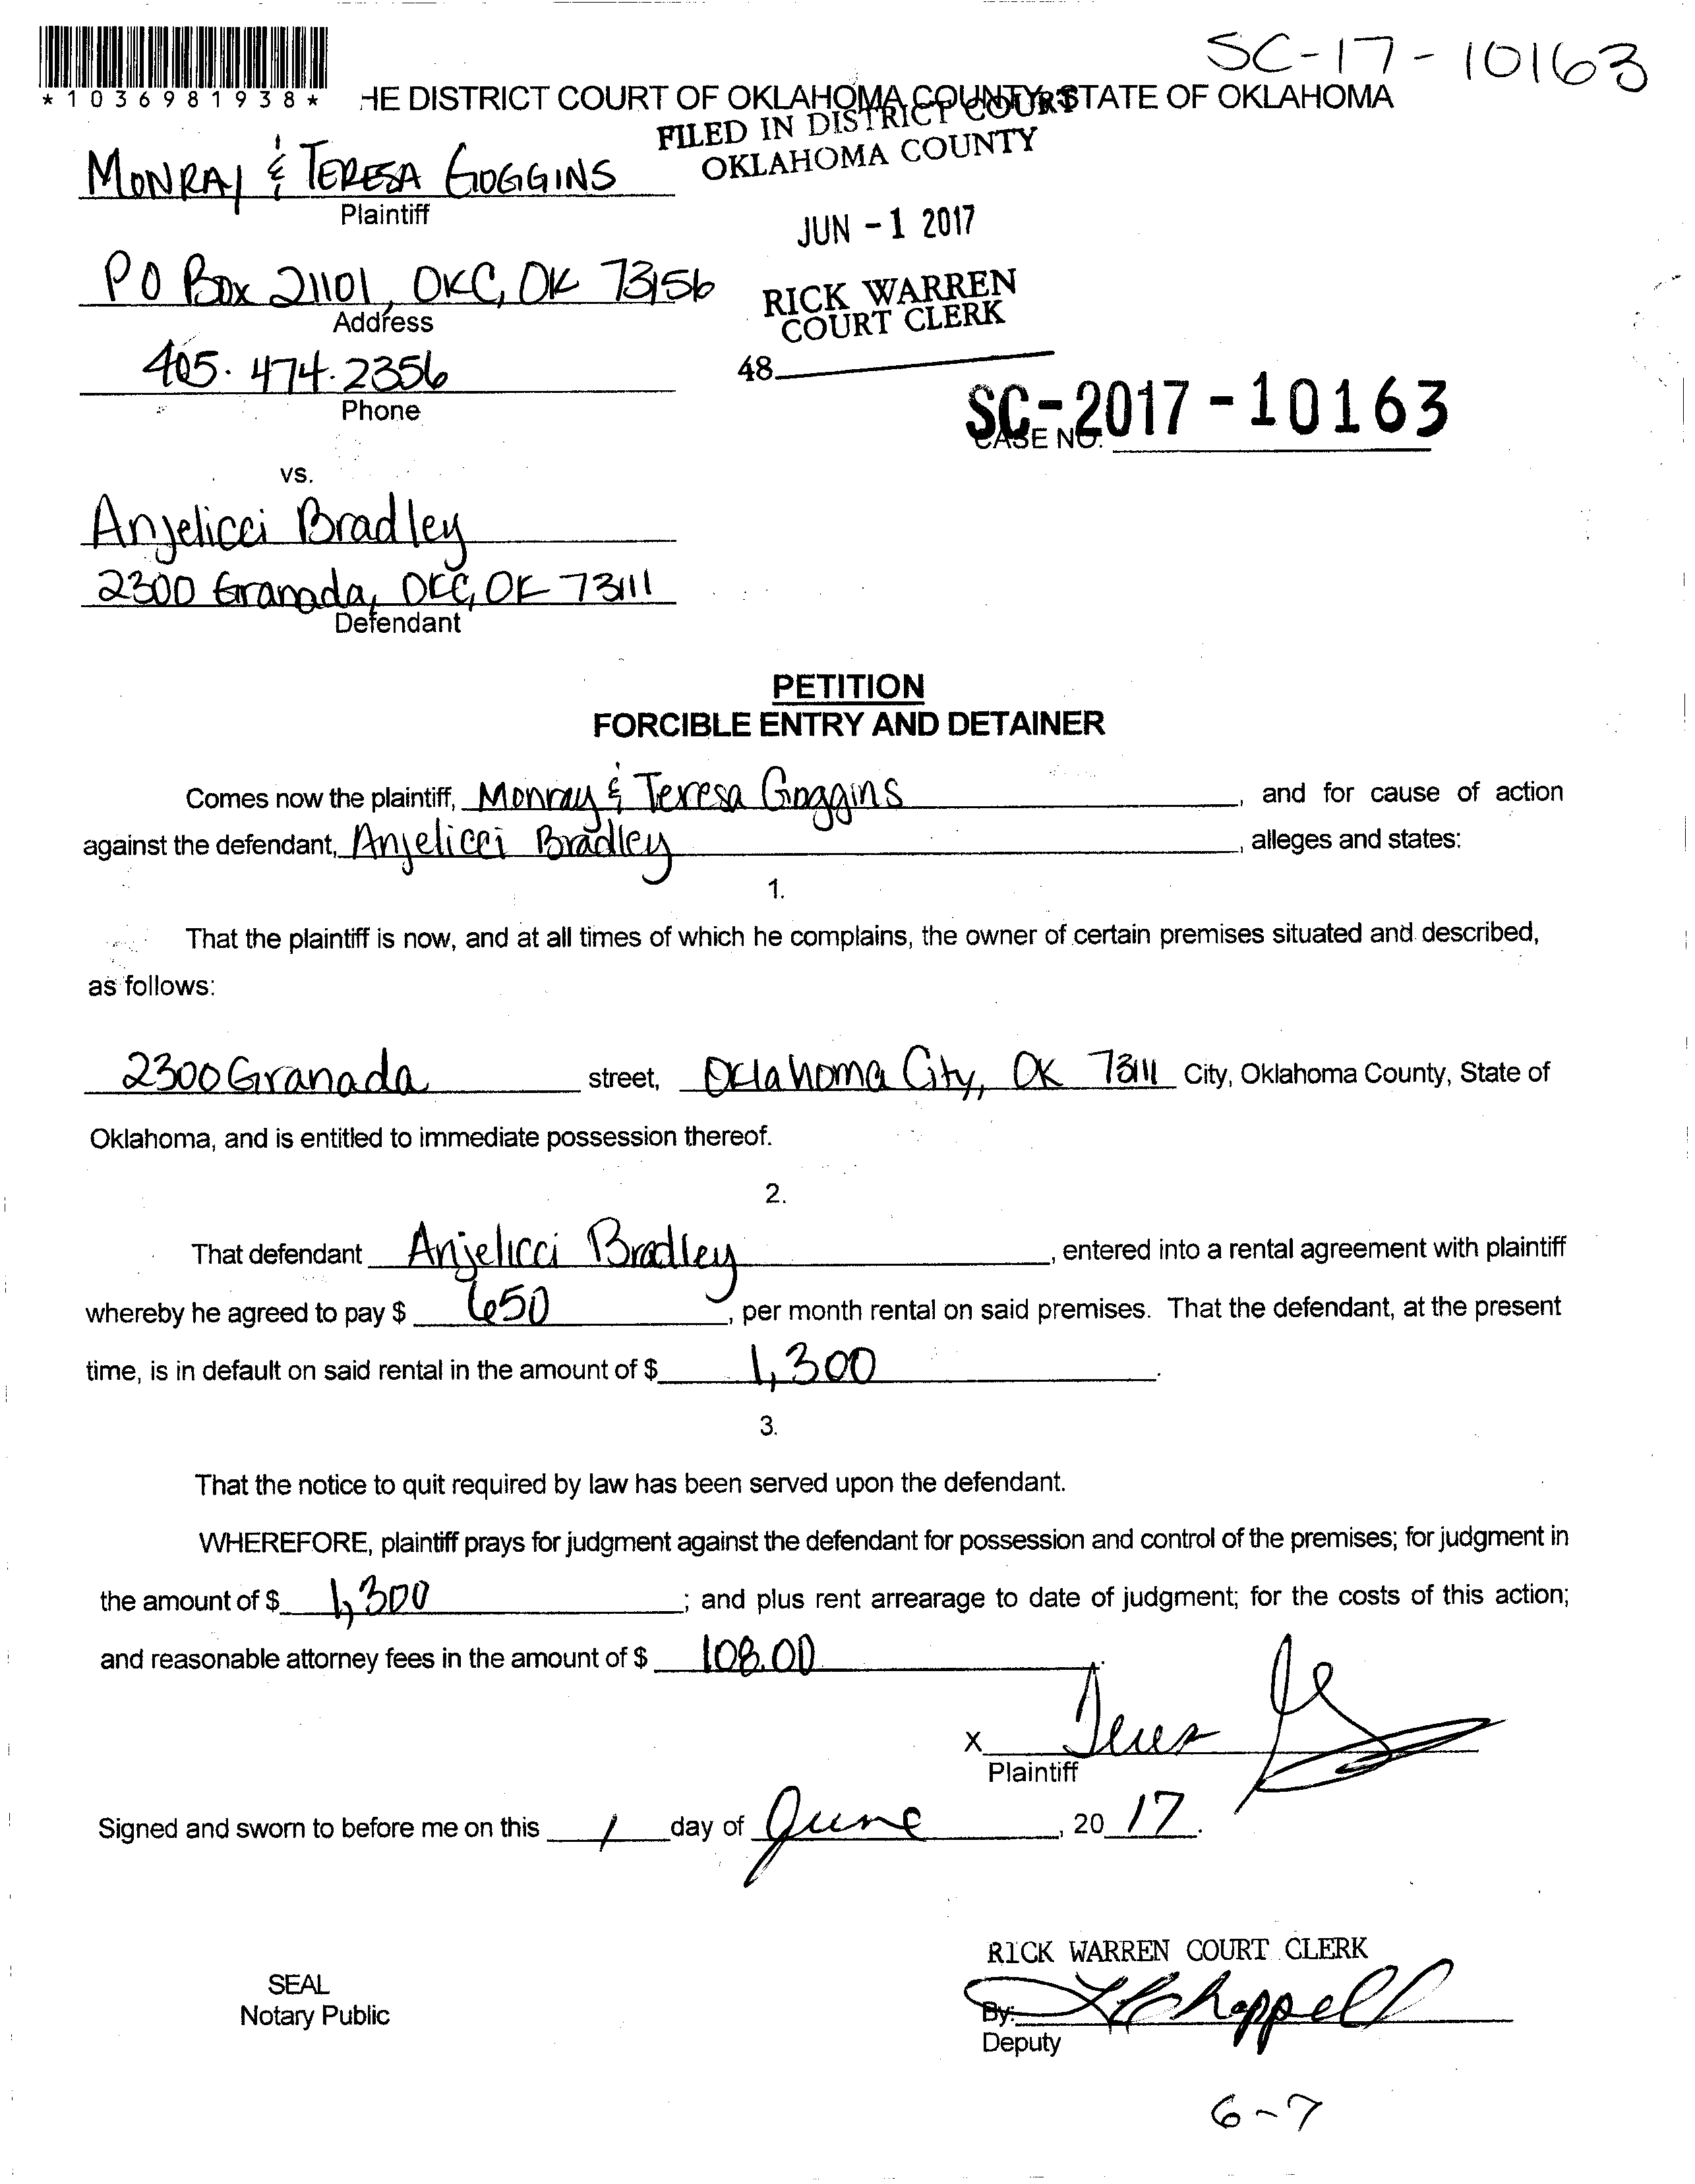 SC-17-10163
*1036981938*
HE DISTRICT COURT OF OKLAHOMA COUNTY, STATE OF OKLAHOMA
FILED IN DISTRICT COURT
OKLAHOMA COUNTY
MONRAY & TERESA GOGGINS
Plaintiff
JUN - 1 2017
PO Box 21101, OKC, OK 73156
Address
RICK WARREN
COURT CLERK
405. 474. 2356
Phone
48
SC-2017-10163
CASE NO.
vs.
Anjelicci Bradley
2300 Granada, OKC, OK 73111
Defendant
PETITION
FORCIBLE ENTRY AND DETAINER
Comes now the plaintiff, Monray & Teresa Goggins, and for cause of action
against the defendant, Anjelicci Bradley, alleges and states:
1.
That the plaintiff is now, and at all times of which he complains, the owner of certain premises situated and described,
as follows:
2300 Granada street, Oklahoma City, OK 73111 City, Oklahoma County, State of
Oklahoma, and is entitled to immediate possession thereof.
2.
That defendant Anjelicci Bradley, entered into a rental agreement with plaintiff
whereby he agreed to pay $ 650, per month rental on said premises. That the defendant, at the present
time, is in default on said rental in the amount of $ 1,300.
3.
That the notice to quit required by law has been served upon the defendant.
WHEREFORE, plaintiff prays for judgment against the defendant for possession and control of the premises; for judgment in
the amount of $ 1,300; and plus rent arrearage to date of judgment; for the costs of this action;
and reasonable attorney fees in the amount of $ 108.00.
X
Plaintiff
Signed and sworn to before me on this 1 day of June, 20 17.
RICK WARREN COURT CLERK
SEAL
Notary Public
By: Chappell
Deputy
6-7